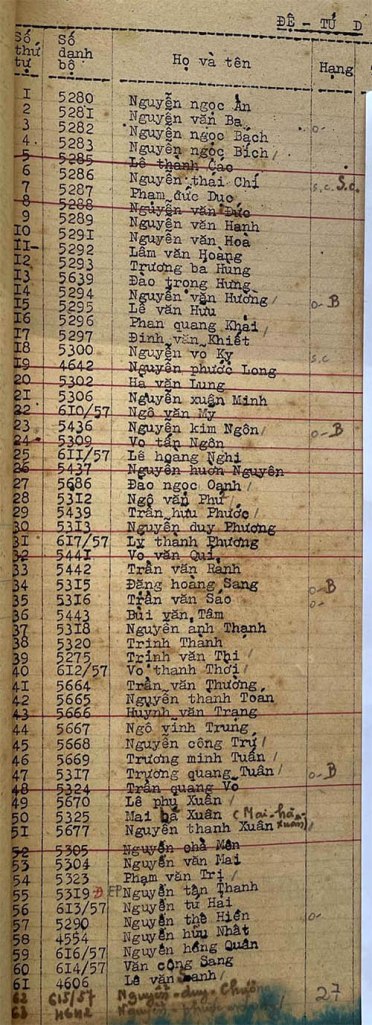 ĐỆ - TỨ D
Số thứ tự Số danh bộ Họ và tên Hạng
1 5280 Nguyễn ngọc Ân
2 5281 Nguyễn văn Ba
3 5282 Nguyễn ngọc Bạch o-
4 5283 Nguyễn ngọc Bích/
5 5285 Lê thành Các
6 5286 Nguyễn thai Chí s.c. S.c.
7 5287 Phạm đức Dục
8 5288 Nguyễn văn Đức
9 5289 Nguyễn văn Hạnh
10 5291 Nguyễn văn Hoà
11 5292 Lâm văn Hoàng
12 5293 Trương ba Hung
13 5639 Đào trọng Hưng
14 5294 Nguyễn văn Hương/ o- B
15 5295 Lê văn Hưu
16 5296 Phan quang Khải/
17 5297 Đinh văn Khiết
18 5300 Nguyễn vo Ky s.c
19 4642 Nguyễn phước Long
20 5302 Hà văn Lung
21 5306 Nguyễn xuân Minh
22 610/57 Ngô văn My
23 5436 Nguyễn kim Ngôn/ o- B
24 5309 Vo tấn Ngôn
25 611/57 Lê hoang Nghi
26 5437 Nguyễn huơn Nguyên
27 5686 Đào ngọc Oanh/
28 5312 Ngô văn Phú/
29 5439 Trần hưu Phước/
30 5313 Nguyễn duy Phương
31 617/57 Lý thành Phương
32 5441 Vo văn Quí
33 5442 Trần văn Rành
34 5315 Đăng hoàng Sang o- B
35 5316 Trần văn Sáo o-
36 5443 Bùi văn Tâm
37 5318 Nguyễn anh Thạnh
38 5320 Trịnh Thành
39 5275 Trịnh văn Thi/
40 612/57 Vo thanh Thơi/
41 5664 Trần văn Thường
42 5665 Nguyễn thanh Toán
43 5666 Huynh văn Trang
44 5667 Ngô vĩnh Trung
45 5668 Nguyễn công Trứ/
46 5669 Trương minh Tuấn/
47 5317 Trương quang Tuân/ o- B
48 5324 Trần quang Vo
49 5670 Lê phú Xuân/
50 5325 Mai bá Xuân (Mai-hân-Xuân)/
51 5677 Nguyễn thanh Xuân
52 5305 Nguyễn chả Mên
53 5304 Nguyễn văn Mai
54 5323 Phạm văn Trị/
55 5319 Nguyễn tân Thanh
56 613/57 Nguyễn tư Hai
57 5290 Nguyễn thế Hiển o-
58 4554 Nguyễn hữu Nhất
59 616/57 Nguyễn hồng Quân
60 614/57 Văn công Sang
61 4606 Lê văn Sanh/ 27
62 615/57 Nguyễn-duy-Chương
63 4642